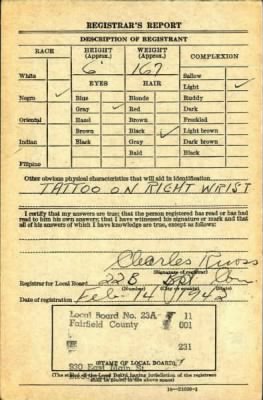 REGISTRAR'S REPORT
DESCRIPTION OF REGISTRANT
RACE HEIGHT (Approx.) WEIGHT (Approx.) COMPLEXION
White 6' 167 Sallow
EYES HAIR Light ✓
Negro ✓ Blue Blonde Ruddy
Gray ✓ Red Dark
Oriental Hazel Brown Freckled
Brown Black ✓ Light brown
Indian Black Gray Dark brown
Bald Black
Filipino
Other obvious physical characteristics that will aid in identification
TATTOO ON RIGHT WRIST
I certify that my answers are true; that the person registered has read or has had
read to him his own answers; that I have witnessed his signature or mark and that
all of his answers of which I have knowledge are true, except as follows:
Charles
(Signature of registrar)
Registrar for Local Board 22B Bpt Conn
(Number) (City or county) (State)
Date of registration Feb 14 1942
Local Board No. 23A- 11
Fairfield County 001
231
930 East Main St
(STAMP OF LOCAL BOARD)
(The stamp of the Local Board having jurisdiction of the registrant
shall be placed in the above space)
16-21630-1